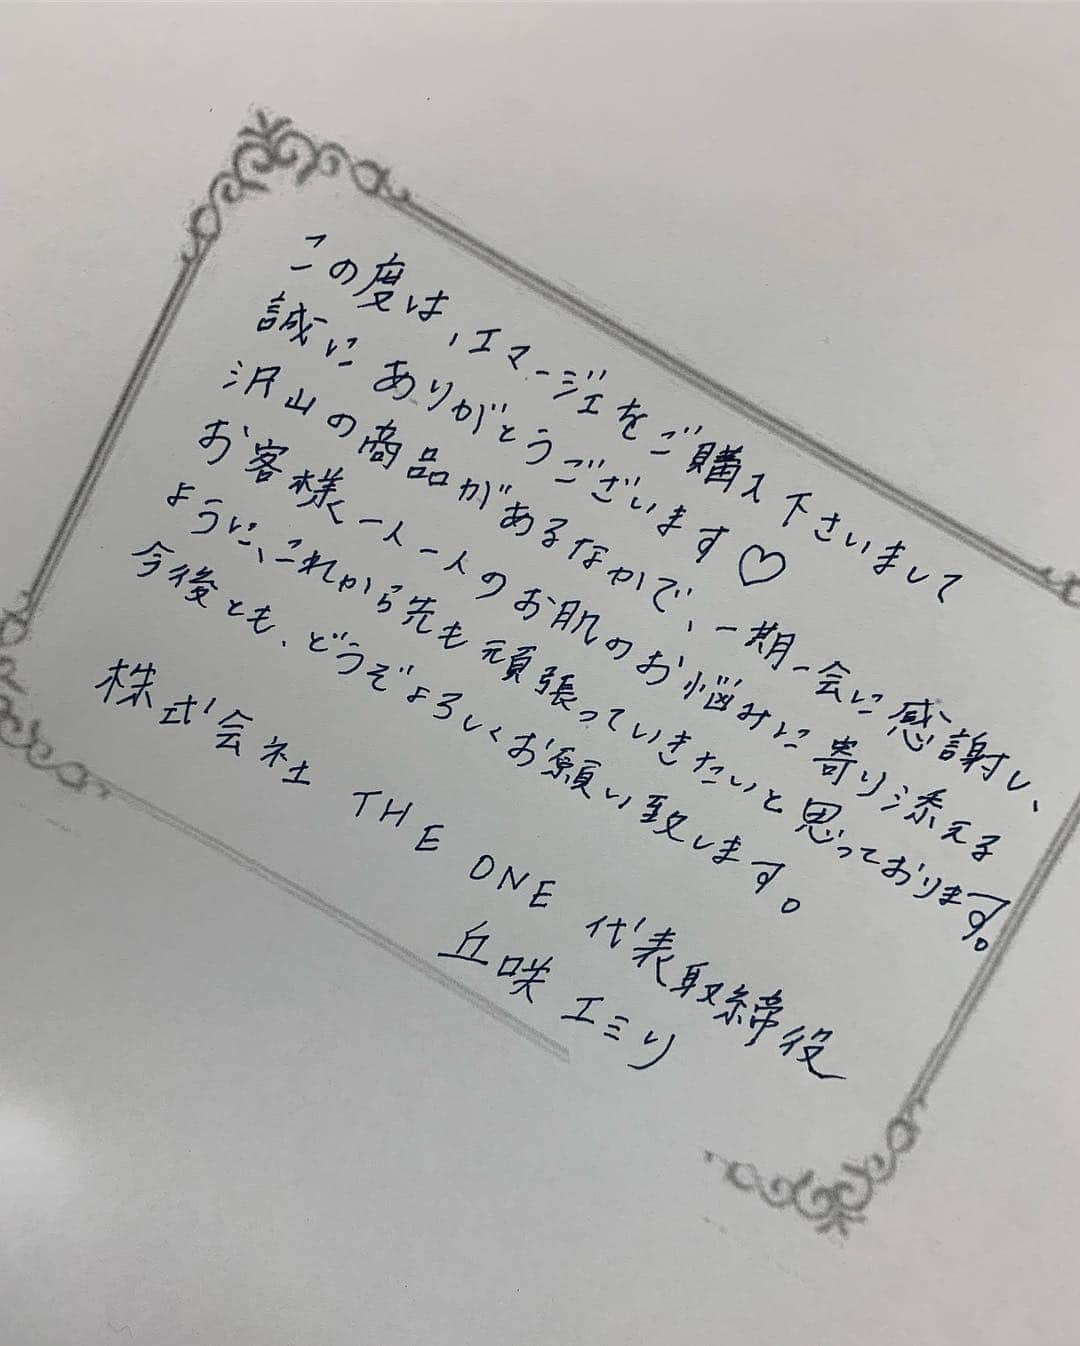 この度は、エマージェをご購入下さいまして
誠にありがとうございます♡
沢山の商品があるなかで、一期一会に感謝し、
お客様一人一人のお肌のお悩みに寄り添える
ように、これから先も頑張っていきたいと思っております。
今後とも、どうぞよろしくお願い致します。
株式会社 THE ONE 代表取締役
丘咲 エミリ